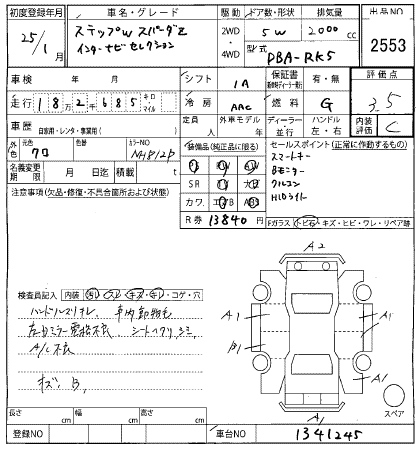 初度登録年月 車名・グレード 駆動 ドア数・形状 排気量 出品NO
25/1月 ステップW スパーダZ インターナビセレクション 2WD・4WD 5W 2000cc 2553
型式 DBA-RK5
車検 年 月 シフト IA 保証書 評価点
走行 182千685 キロ・マイル 冷房 AAC 燃料 G 3.5
車歴 自家用・レンタ・事業用( ) 定員 人 外車モデル 年 ディーラー・並行 ハンドル 左・右 内装評価 C
外色 元色 クロ 色替 カラーNO NH812P 装備品(純正品に限る) セールスポイント(正常に作動するもの)
名義変更期限 月 日 積載量 t SR
スマートキー
Bモニター
クルコン
HIDライト
注意事項(欠品・修復・不具合箇所および状態) カワ エアB ABS
R券 13840円 Fガラス トビ石・キズ・ヒビ・ワレ・リペア跡
A2
検査員記入 内装 コゲ・穴
A1 A1
ハンドルスリキレ
B1 A1
A/C
キズ、B
スペア
長さ cm 幅 cm 高さ cm
A1
登録NO 車台NO 1341245